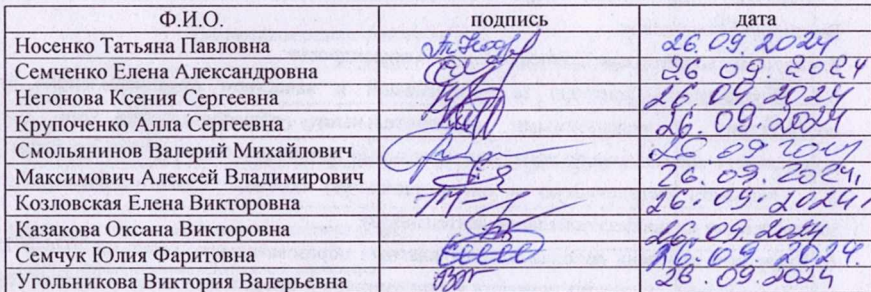 Ф.И.О. подпись дата
Носенко Татьяна Павловна 26.09.2024
Семченко Елена Александровна 26 09. 2024
Негонова Ксения Сергеевна 26.09.2024
Крупоченко Алла Сергеевна 26.09.2024
Смольянинов Валерий Михайлович 26 09
Максимович Алексей Владимирович 26.09.2024,
Козловская Елена Викторовна 26.09.2024,
Казакова Оксана Викторовна 26.09 2024
Семчук Юлия Фаритовна 26.09.2024.
Угольникова Виктория Валерьевна 26.09.2024